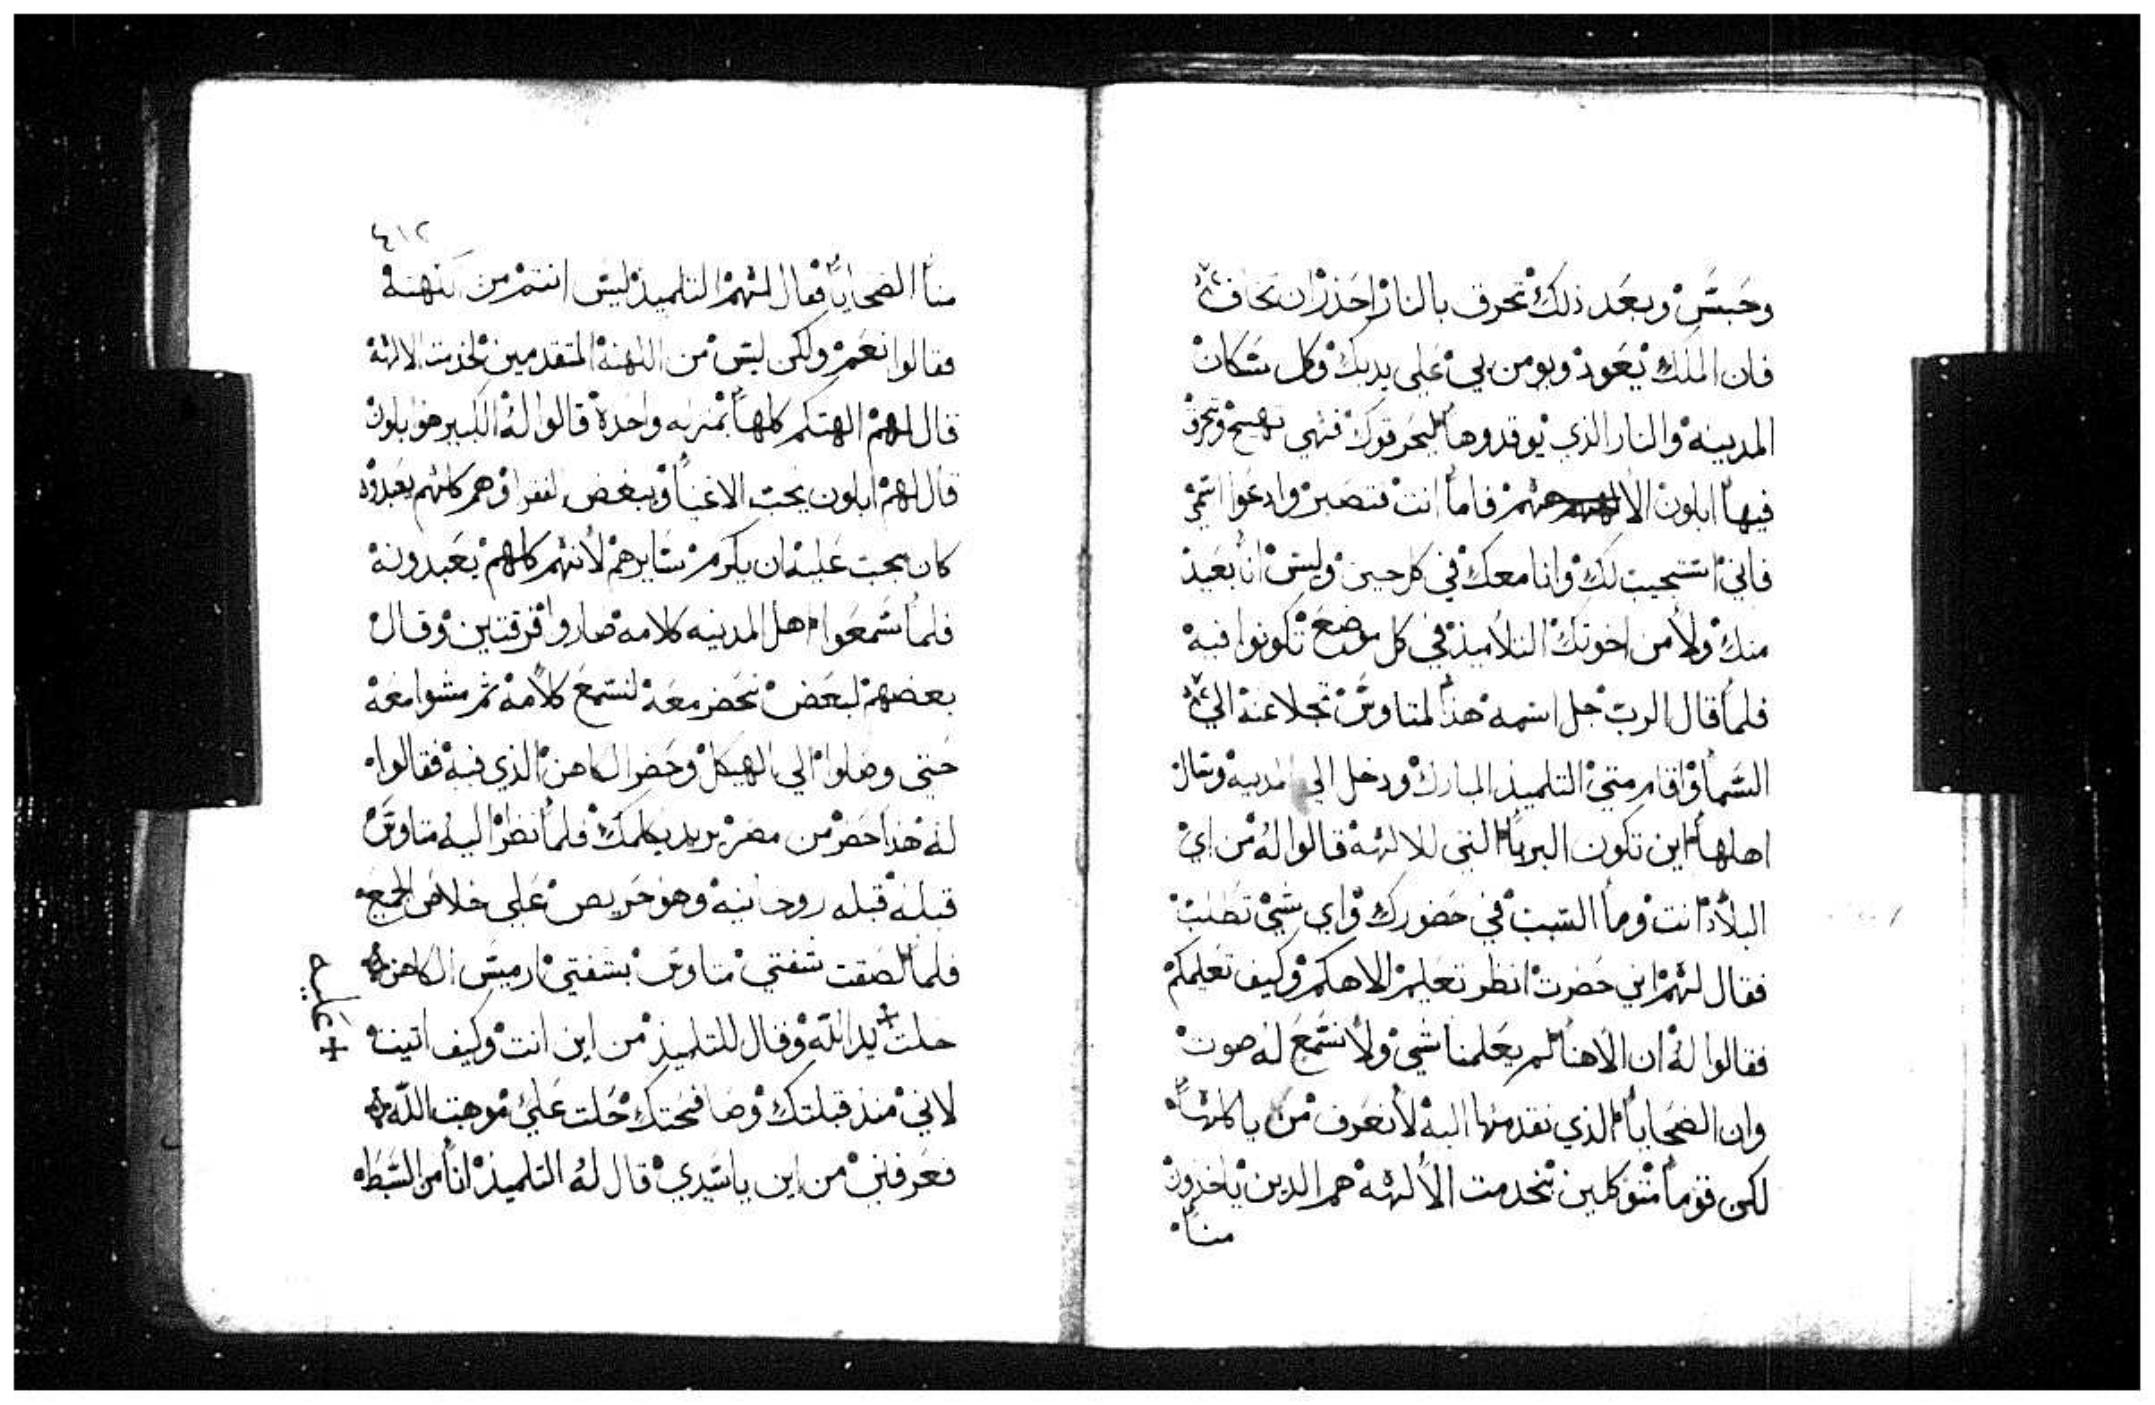 وحبس وبعد ذلك تحرق بالنار احذر ان تخاف
فان الملك يعود ويومن بي علي يديك وكل سكان
المدينه والنار الذي يوقدوها ليحرقوك فهي تهيج وتحرق
فيها ابلون الاههم فاما انت تتصبر وادعوا اسمي
فاني استجيب لك وانا معك في كل حين وليس انا بعيد
منك ولا من اخوتك التلاميذ في كل موضع تكونوا فيه
فلما قال الرب جل اسمه هذا لمتاوس تجلا عنه الي
السما واقام متي التلميذ المبارك ودخل الي المدينه وسال
اهلها اين تكون البربا التي للالهه قالوا له من اي
البلاد انت وما السبب في حضورك واي شي تطلب
فقال لهم اني حضرت انظر تعليم الاهكم وكيف تعلمكم
فقالوا له ان الاهنا لم يعلمنا شي ولا نسمع له صوت
وان الضحايا الذي نقدمها اليه لا نعرف من ياكلها
لكن قوما متوكلين بخدمت الالهه هم الدين ياخذون
منا
٤١٢
منا الضحايا فقال لهم التلميذ ليس انتم من كهنه
فقالوا نعم ولكن ليس من الكهنه المتقدمين لخدمت الالهه
قال لهم الهتكم كلها بمنزله واحده قالوا له الكبير هو ابلون
قال لهم ابلون يحب الاغنيا ويبغض الفقرا وهم كلهم يعبدوه
كان يجب عليه ان يكرم سايرهم لانهم كلهم يعبدونه
فلما سمعوا اهل المدينه كلامه صاروا فرقتين وقال
بعضهم لبعض نحضر معه لنسمع كلامه ثم مشوا معه
حتي وصلوا الي الهيكل وحضر الكاهن الذي فيه فقالوا
له هذا حضر من مصر يريد يكلمك فلما نظر اليه متاوس
قبله قبله روحانيه وهو حريص علي خلاص الجميع
فلما لصقت شفتي متاوس بشفتي ارميس الكاهن
حلت + يد الله وقال للتلميذ من اين انت وكيف اتيت
+ عليه
لاني منذ قبلتك وصافحتك حلت علي موهبت الله
فعرفني من اين يا سيدي قال له التلميذ انا من السبطاه